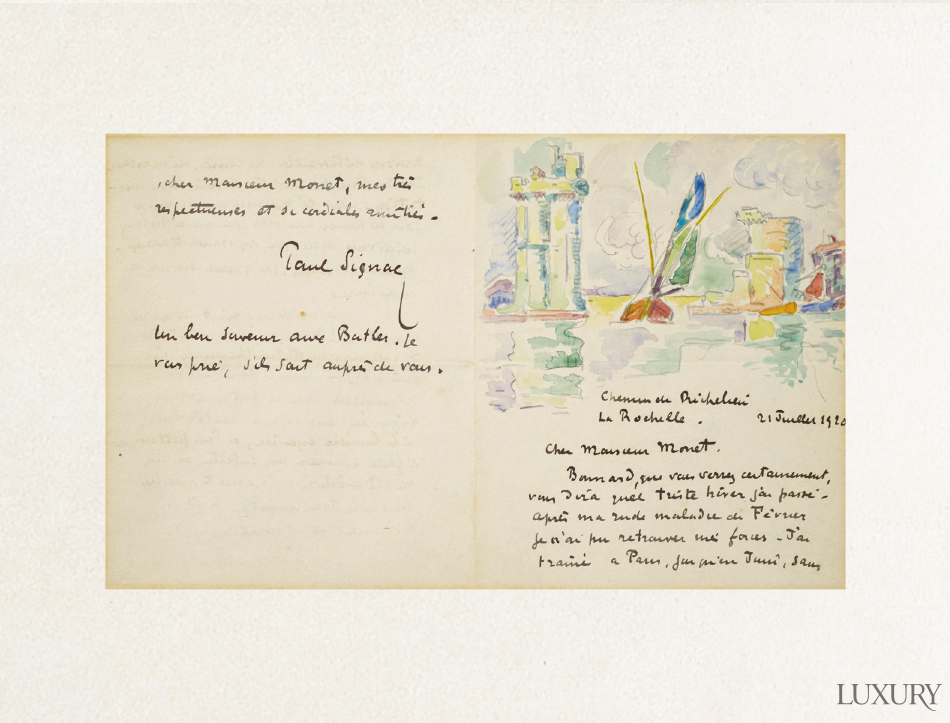 , cher Monsieur Monet, mes très
respectueuses et si cordiales amitiés.
Paul Signac
Un bon souvenir aux Butler. Je
vous prie, s'ils sont auprès de vous.
Chemin de Richelieu
La Rochelle. 21 Juillet 1920
Cher Monsieur Monet.
Bonnard, que vous verrez certainement,
vous dira quel triste hiver j'ai passé -
après ma rude maladie de Février
je n'ai pu retrouver mes forces - J'ai
traîné à Paris, jusqu'en Juin, sans
LUXURY